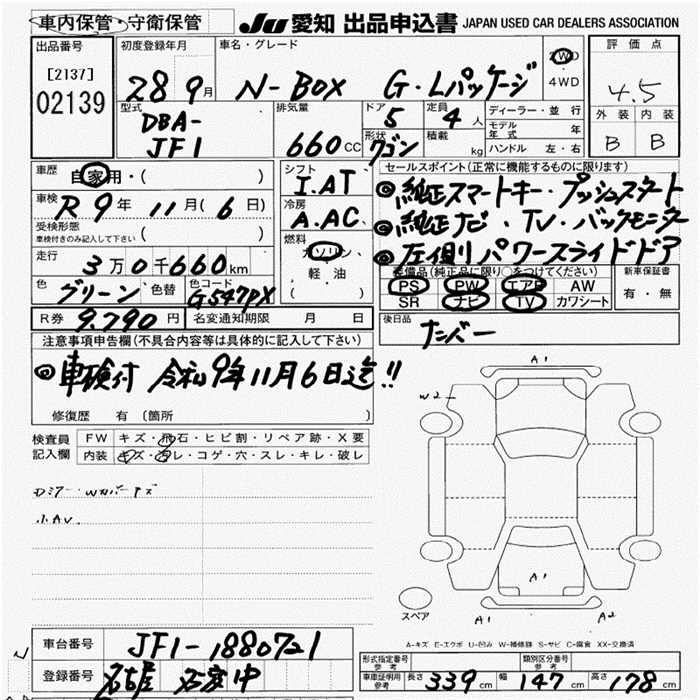 車内保管・守衛保管
JU 愛知 出品申込書 JAPAN USED CAR DEALERS ASSOCIATION
出品番号
[2137]
02139
初度登録年月
28 9月
車名・グレード
N-BOX G・Lパッケージ
2WD
・
4WD
評価点
4.5
外装 内装
B B
型式
DBA-
JF1
排気量
660cc
ドア
5
定員
4人
形状
ワゴン
積載
kg
ディーラー・並行
モデル
年式 年
ハンドル 左・右
車歴
自家用・( )
車検
R9年11月(6日)
受検形態
車検付きのみ記入して下さい ( )
走行
3万0千660km
色
グリーン
色替
色コード
G547PX
R券 9.790円
名変通知期限 月 日
シフト
I.AT
冷房
A.AC
燃料
ガソリン
軽油
( )
セールスポイント(正常に機能するものに限ります)
◎純正スマートキー・プッシュスタート
◎純正ナビ・TV・バックモニター
◎左側パワースライドドア
装備品(純正品に限り○をつけてください)
PS PW エアB AW
SR ナビ TV カワシート
新車保証書
有・無
後日品
ナンバー
注意事項申告欄(不具合内容等は具体的に記入して下さい)
◎車検付 令和9年11月6日迄!!
修復歴 有〔箇所 〕
検査員
記入欄
FW キズ・飛石・ヒビ割・リペア跡・X要
内装 キズ・汚レ・コゲ・穴・スレ・キレ・破レ
A1
W2
A1
A1
A2
スペア
A-キズ E-エクボ U-凹み W-補修跡 S-サビ C-腐食 XX-交換済
車台番号 JF1-1880721
登録番号 名古屋
形式指定番号
参考
類別区分番号
参考
車庫証明用
参考
長さ 339cm 幅 147cm 高さ 178cm